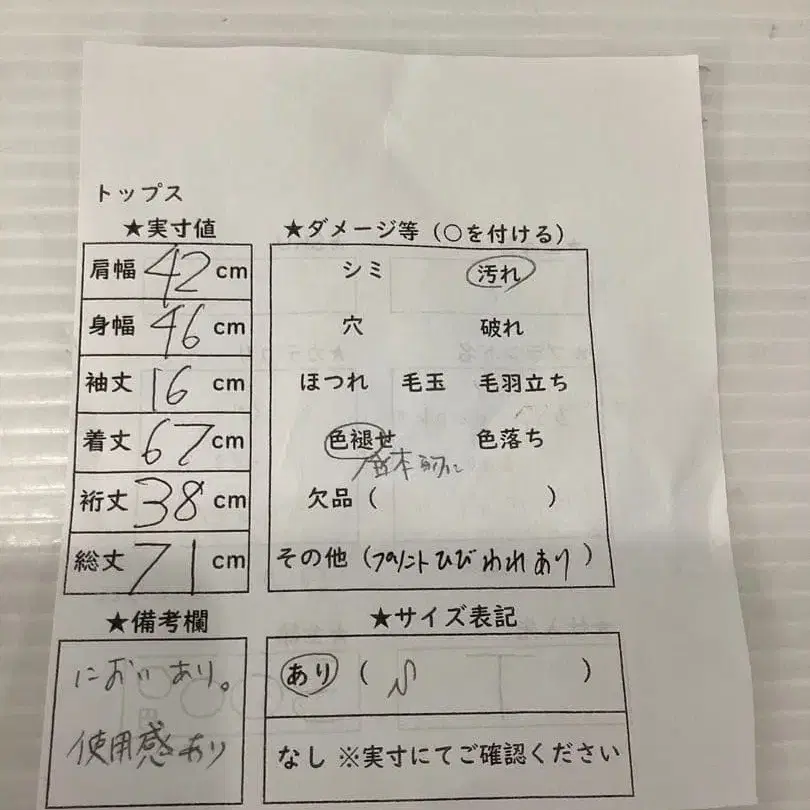 トップス
★実寸値
肩幅 42 cm
身幅 46 cm
袖丈 16 cm
着丈 67 cm
裄丈 38 cm
総丈 71 cm
★ダメージ等（○を付ける）
シミ 汚れ
穴 破れ
ほつれ 毛玉 毛羽立ち
色褪せ 色落ち
全体的に
欠品（ ）
その他（プリントひびわれあり）
★備考欄
においあり。
使用感あり
★サイズ表記
あり（ S ）
なし ※実寸にてご確認ください